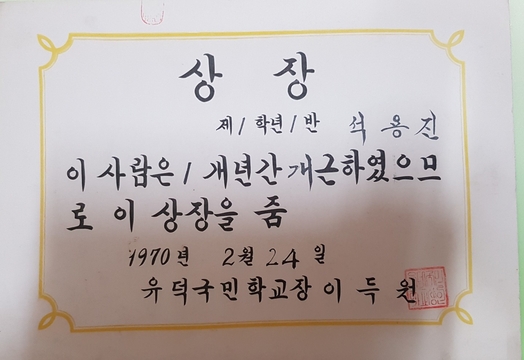 상 장
제 1 학년 1 반 석용진
이 사람은 1 개년간 개근하였으므
로 이 상장을 줌
1970년 2월 24일
유덕국민학교장 이득원